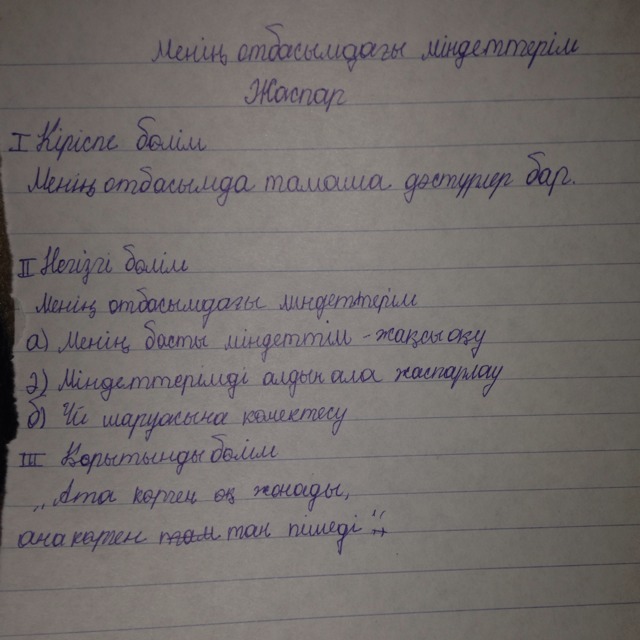 Менің отбасымдағы міндеттерім
Жаспар
I Кіріспе бөлім
Менің отбасымда тамаша дәстүрлер бар.
II Негізгі бөлім
Менің отбасымдағы міндеттерім
а) Менің басты міндеттім - жақсы оқу
ә) Міндеттерімді алдын ала жаспарлау
б) Үй шаруасына көмектесу
III Қорытынды бөлім
„Ата көрген оқ жонады,
ана көрген там тон пішеді“.